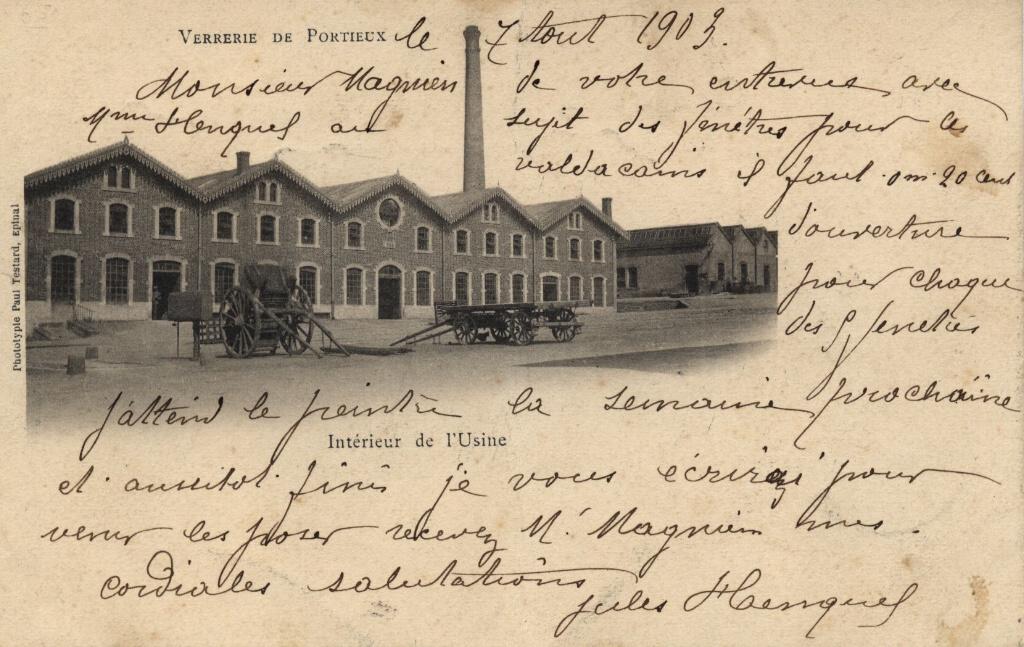 VERRERIE DE PORTIEUX
le 7 Aout 1903.
Monsieur Magnien
de votre entrevue avec
Mme Henquel au
sujit des finêtres pour les
valdacains il faut 0m.20 cent
d'ouverture
pour chaque
des fenetres
j'attend le peintre la semaine prochaine
Intérieur de l'Usine
et aussitot finis je vous écrirai pour
venir les poser recevez Mr Magnien mes
cordiales salutations
Jules Henquel
Phototypie Paul Testard, Epinal